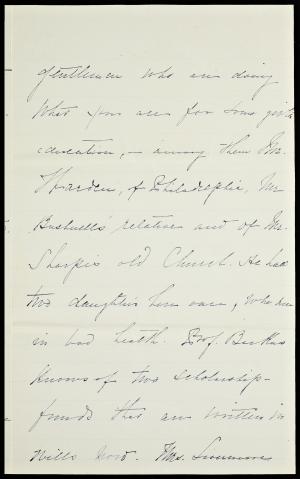 gentlemen who are doing
what you are for some girl's
education, – among them Mr.
Harden, of Philadelphia, Mr.
Bushnell's relative and of Mr.
Sharpe's old Church. He has
two daughters here now, who are
in bad health. Prof.
knows of two scholarship-
funds that are written in
wills now. Mrs.